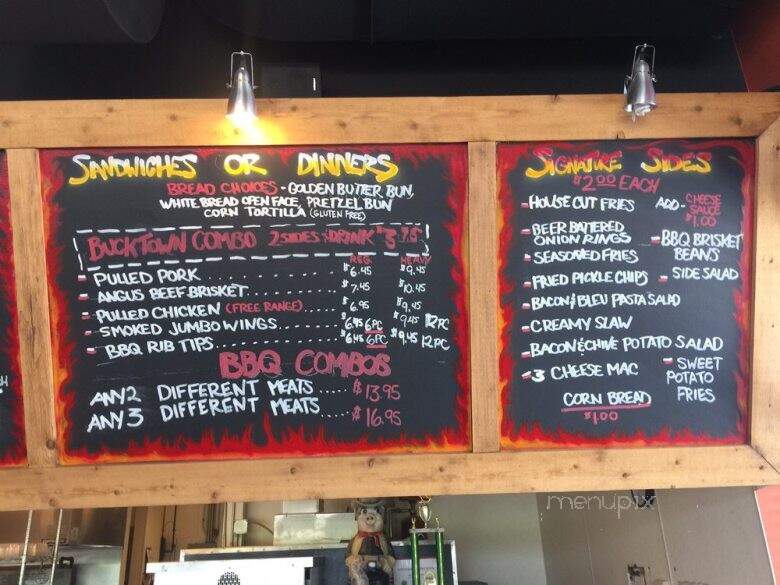 SANDWICHES OR DINNERS
BREAD CHOICES - GOLDEN BUTTER BUN,
WHITE BREAD OPEN FACE, PRETZEL BUN
CORN TORTILLA (GLUTEN FREE)
BUCKTOWN COMBO 2 SIDES & DRINK $3.75
REG. HEAVY
PULLED PORK $6.45 $9.45
ANGUS BEEF BRISKET $7.45 $10.45
PULLED CHICKEN (FREE RANGE) $6.95 $9.45
SMOKED JUMBO WINGS $6.95 6PC $9.45 12PC
BBQ RIB TIPS $6.45 6PC $9.45 12PC
BBQ COMBOS
ANY 2 DIFFERENT MEATS.... $13.95
ANY 3 DIFFERENT MEATS.... $16.95
SIGNATURE SIDES
$2.00 EACH
- HOUSE CUT FRIES
ADD - CHEESE
SAUCE
$1.00
- BEER BATTERED
ONION RINGS
- BBQ BRISKET
BEANS
- SEASONED FRIES
- SIDE SALAD
- FRIED PICKLE CHIPS
- BACON & BLEU PASTA SALAD
- CREAMY SLAW
- BACON & CHIVE POTATO SALAD
- 3 CHEESE MAC
- SWEET
POTATO
FRIES
CORN BREAD
$1.00
menupix